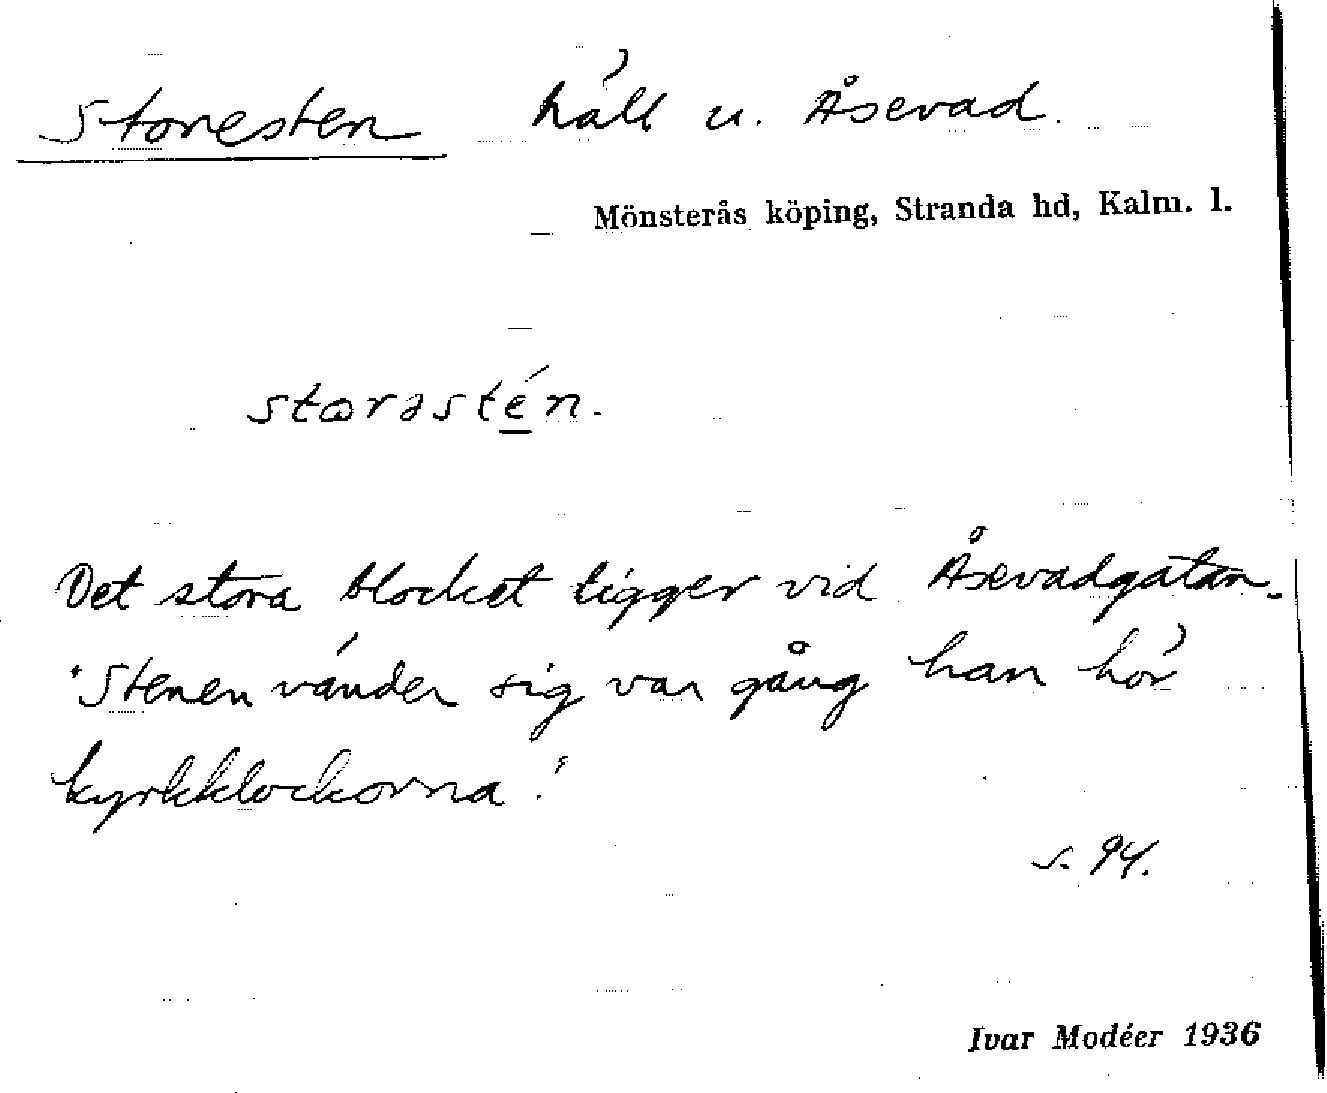 Storesten häll u. Åsevad.
Mönsterås köping, Stranda hd, Kalm. l.
storəstén.
Det stora blocket ligger vid Åsevadgatan.
"Stenen vänder sig var gång han hör
kyrkklockorna!
s. 94.
Ivar Modéer 1936